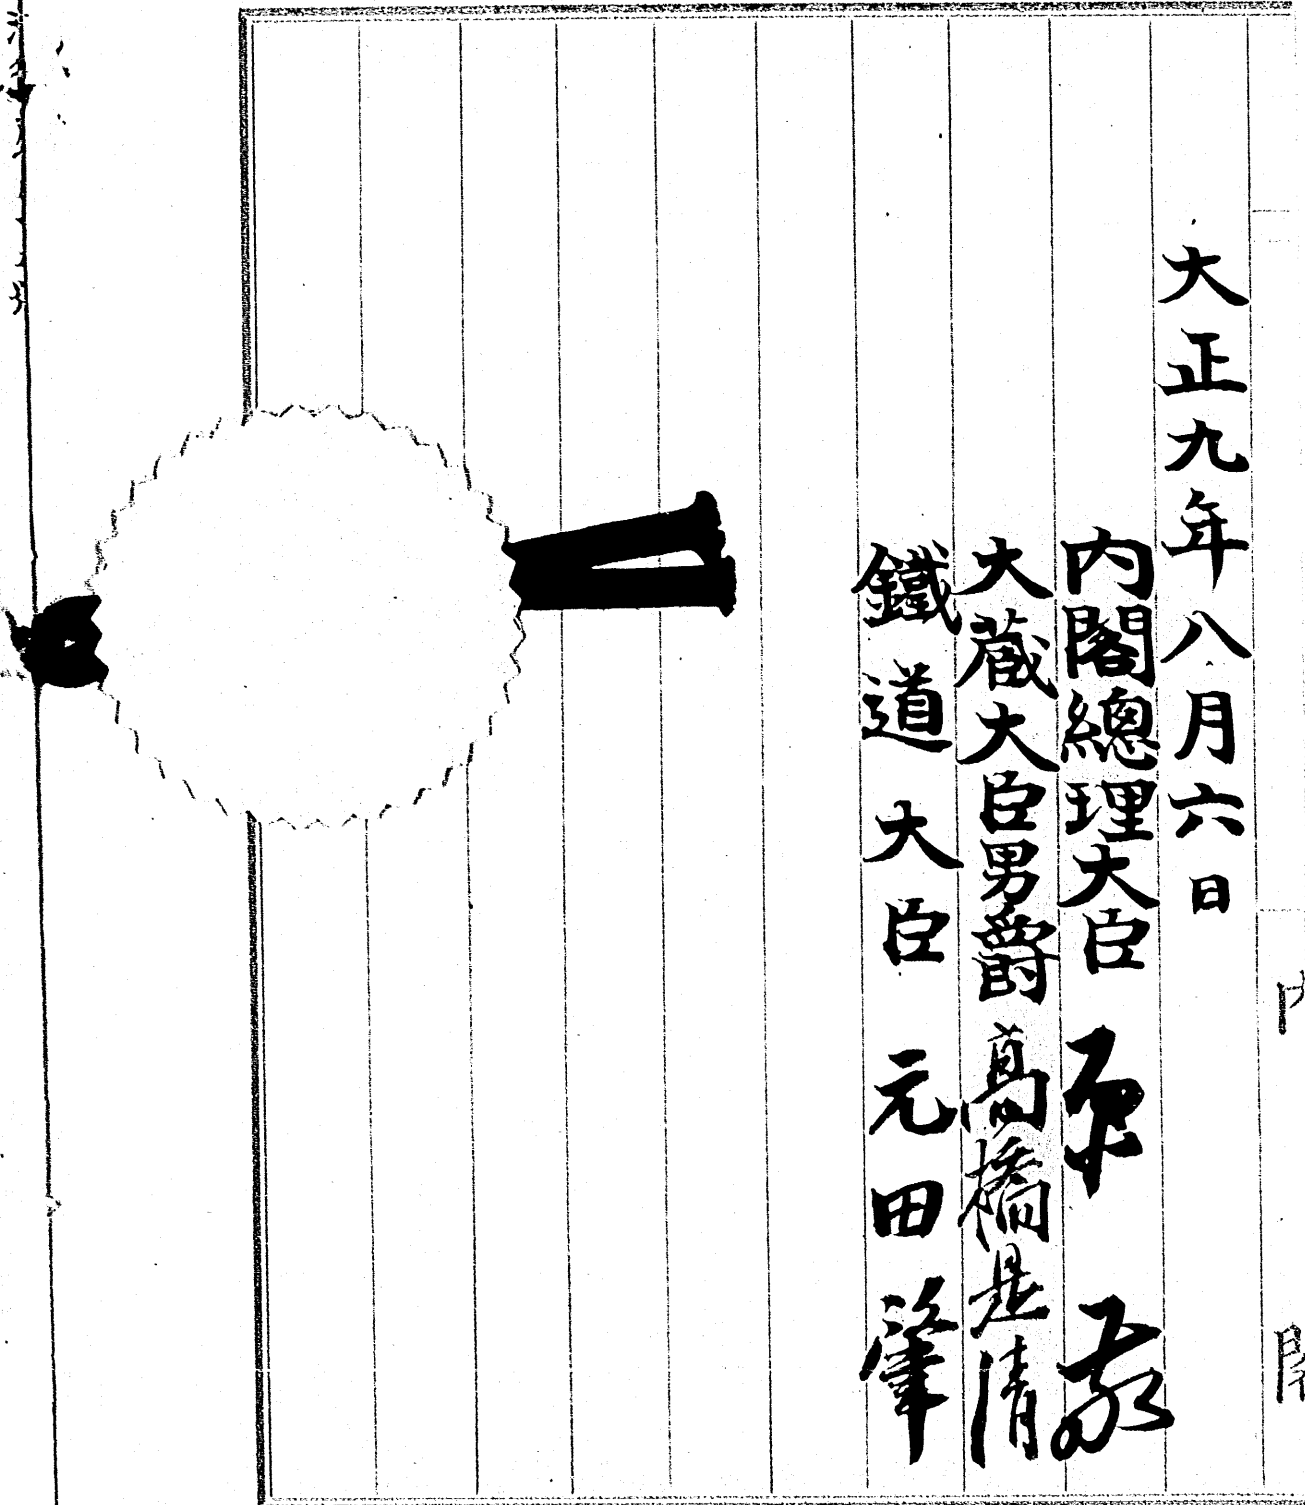 大正九年八月六日
内閣總理大臣 原敬
大藏大臣男爵 高橋是清
鐵道大臣 元田肇